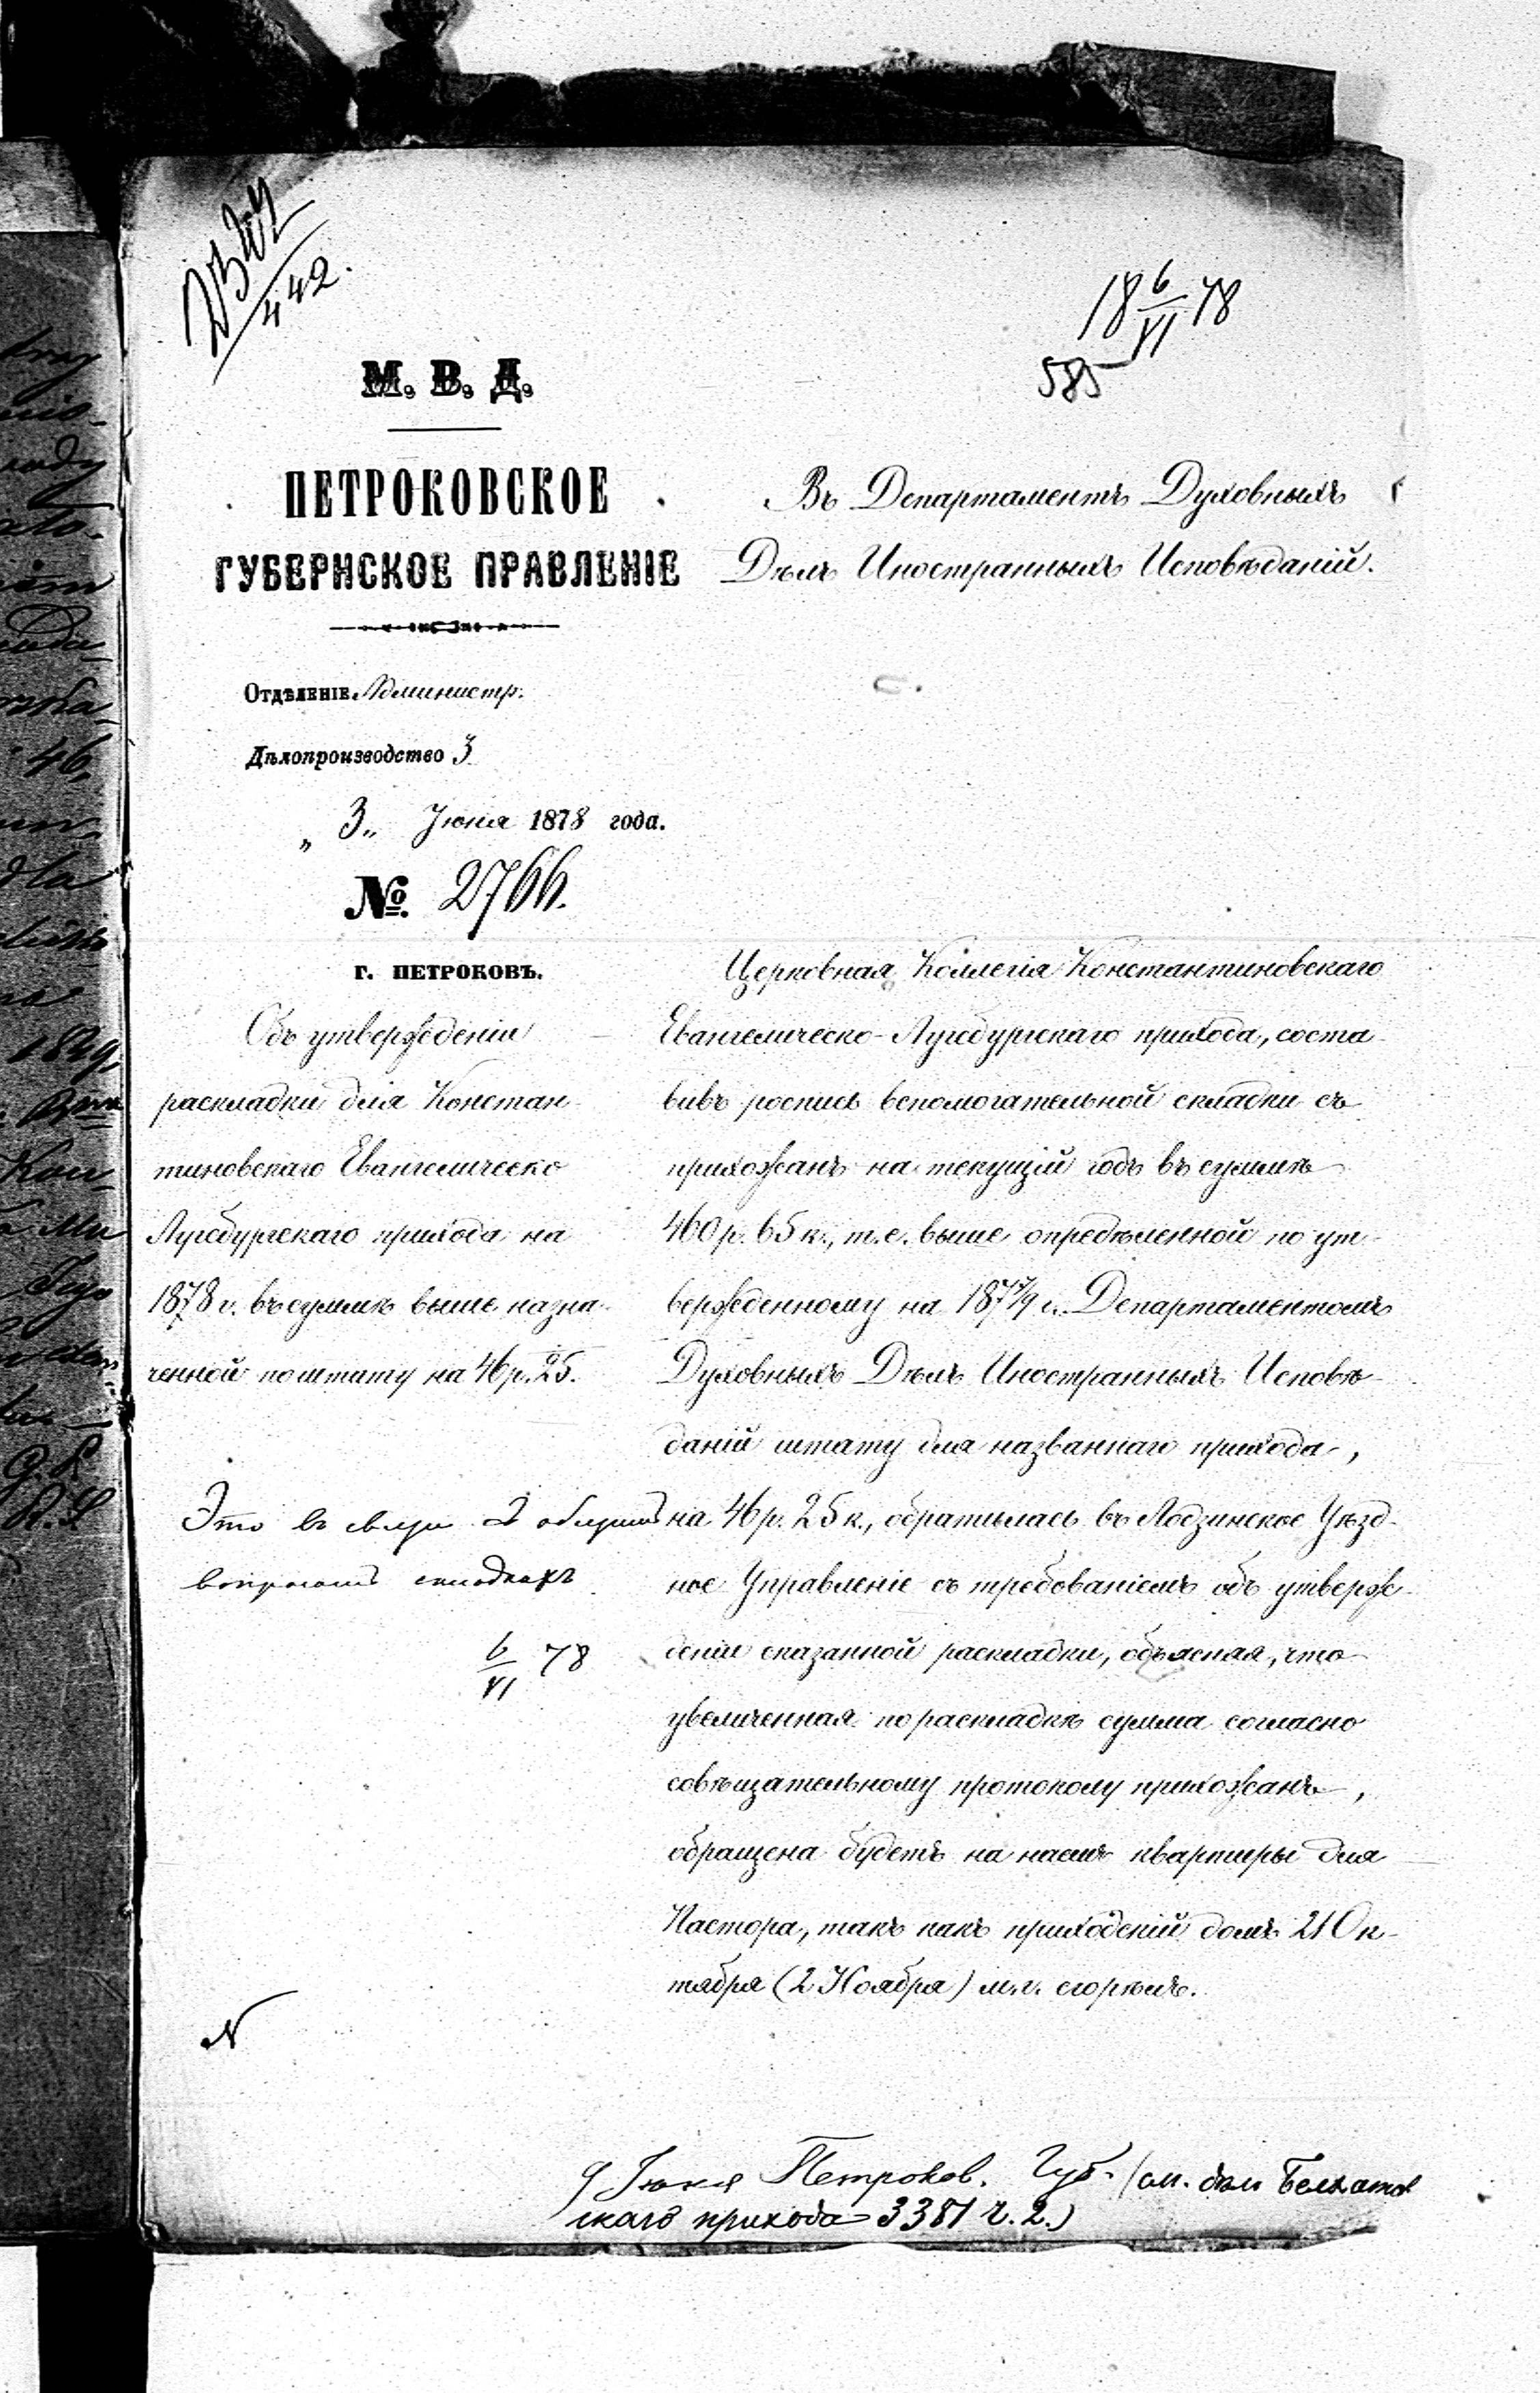 442.
18 6/VI 78
585
М. В. Д.
ПЕТРОКОВСКОЕ
ГУБЕРНСКОЕ ПРАВЛЕНІЕ
Отдѣленіе Администр.
Дѣлопроизводство 3
„ 3 „ Іюня 1878 года.
№ 2766.
г. ПЕТРОКОВЪ.
Объ утвержденіи
раскладки для Констан-
тиновскаго Евангелическо
Аугсбургскаго прихода на
1878 г. въ суммѣ выше назна-
ченной по штату на 46 р. 25.
Это въ связи съ общимъ
вопросомъ
6/VI 78
Въ Департаментъ Духовныхъ
Дѣлъ Иностранныхъ Исповѣданій.
Церковная Коллегія Константиновскаго
Евангелическо-Аугсбургскаго прихода, соста-
вивъ роспись вспомогательной складки съ
прихожанъ на текущій годъ въ суммѣ
460 р. 65 к., т. е. выше опредѣленной по ут-
вержденному на 1877/9 г. Департаментомъ
Духовныхъ Дѣлъ Иностранныхъ Исповѣ-
даній штату для названнаго прихода,
на 46 р. 25 к., обратилась въ Лодзинское Уѣзд-
ное Управленіе съ требованіемъ объ утверж-
деніи сказанной раскладки, объясняя, что
увеличенная по раскладкѣ сумма согласно
совѣщательному протоколу прихожанъ,
обращена будетъ на наемъ квартиры для
Пастора, такъ какъ приходскій домъ 21 Ок-
тября (2 Ноября) м. г. сгорѣлъ.
9 Іюня Петроков. Губ. (см. дѣло Белхатов
скаго прихода 3381 ч. 2.)